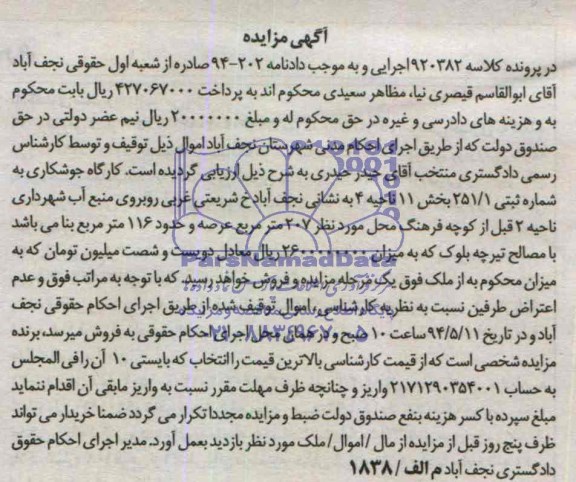 آگهی مزایده
در پرونده کلاسه ۹۲۰۳۸۲ اجرایی و به موجب دادنامه ۲۰۲-۹۴ صادره از شعبه اول حقوقی نجف آباد
آقای ابوالقاسم قیصری نیا، مظاهر سعیدی محکوم اند به پرداخت ۴۲۷۰۶۷۰۰۰ ریال بابت محکوم
به و هزینه های دادرسی و غیره در حق محکوم له و مبلغ ۲۰۰۰۰۰۰۰ ریال نیم عضر دولتی در حق
صندوق دولت که از طریق اجرای احکام مدنی شهرستان نجف آباد اموال ذیل توقیف و توسط کارشناس
رسمی دادگستری منتخب آقای حیدر حیدری به شرح ذیل ارزیابی گردیده است. کارگاه جوشکاری به
شماره ثبتی ۲۵۱/۱ بخش ۱۱ ناحیه ۴ به نشانی نجف آباد خ شریعتی غربی روبروی منبع آب شهرداری
ناحیه ۲ قبل از کوچه فرهنگ محل مورد نظر ۲۰۷ متر مربع عرصه و حدود ۱۱۶ متر مربع بنا می باشد
با مصالح تیرچه بلوک که به میزان ۲۶۰۰۰۰۰۰۰۰ ریال معادل دویست و شصت میلیون تومان که به
میزان محکوم به از ملک فوق یک مرحله مزایده و فروش خواهد رسید. که با توجه به مراتب فوق و عدم
اعتراض طرفین نسبت به نظریه کارشناسی، اموال توقیف شده از طریق اجرای احکام حقوقی نجف
آباد و در تاریخ ۹۴/۵/۱۱ ساعت ۱۰ صبح و در همان محل اجرای احکام حقوقی به فروش میرسد، برنده
مزایده شخصی است که از قیمت کارشناسی بالاترین قیمت را انتخاب که بایستی ۱۰ آن را فی المجلس
به حساب ۲۱۷۱۲۹۰۳۵۴۰۰۱ واریز و چنانچه ظرف مهلت مقرر نسبت به واریز مابقی آن اقدام ننماید
مبلغ سپرده با کسر هزینه بنفع صندوق دولت ضبط و مزایده مجددا تکرار می گردد ضمنا خریدار می تواند
ظرف پنج روز قبل از مزایده از مال / اموال / ملک مورد نظر بازدید بعمل آورد. مدیر اجرای احکام حقوق
دادگستری نجف آباد م الف / ۱۸۳۸
ParsNamadData